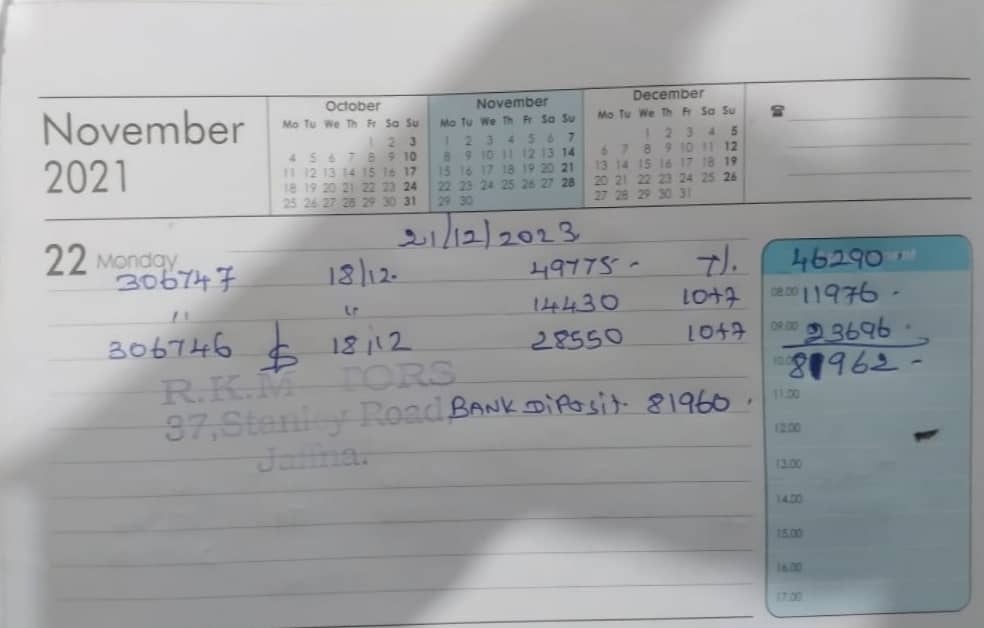 November 2021
October
Mo Tu We Th Fr Sa Su
1 2 3
4 5 6 7 8 9 10
11 12 13 14 15 16 17
18 19 20 21 22 23 24
25 26 27 28 29 30 31
November
Mo Tu We Th Fr Sa Su
1 2 3 4 5 6 7
8 9 10 11 12 13 14
15 16 17 18 19 20 21
22 23 24 25 26 27 28
29 30
December
Mo Tu We Th Fr Sa Su
1 2 3 4 5
6 7 8 9 10 11 12
13 14 15 16 17 18 19
20 21 22 23 24 25 26
27 28 29 30 31
21/12/2023
22 Monday
306747 18/12. 49775 - 7%. 46290 -
" " 14430 10+7 08.00 11976 -
306746 $ 18/12 28550 10+7 09.00 23696 -
10.00 81962 -
R.K.M TORS
37, Stanley Road, BANK DiPosit. 81960 . 11.00
Jaffna.
12.00
13.00
14.00
15.00
16.00
17.00